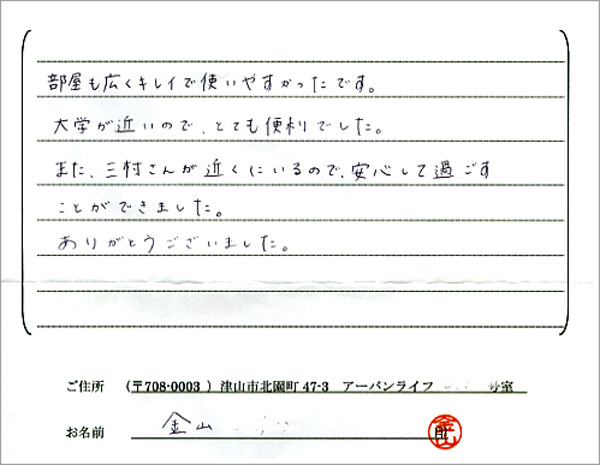 部屋も広くキレイで使いやすかったです。
大学が近いので、とても便利でした。
また、三村さんが近くにいるので、安心して過ごす
ことができました。
ありがとうございました。
ご住所 (〒708-0003 ) 津山市北園町 47-3 アーバンライフ 号室
お名前 金山 印
金山